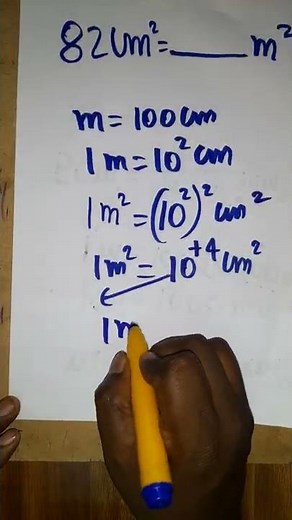 82cm²=____m²
m=100cm
1m=10²cm
1m²=(10²)²cm²
1m²=10⁺⁴cm²
1m